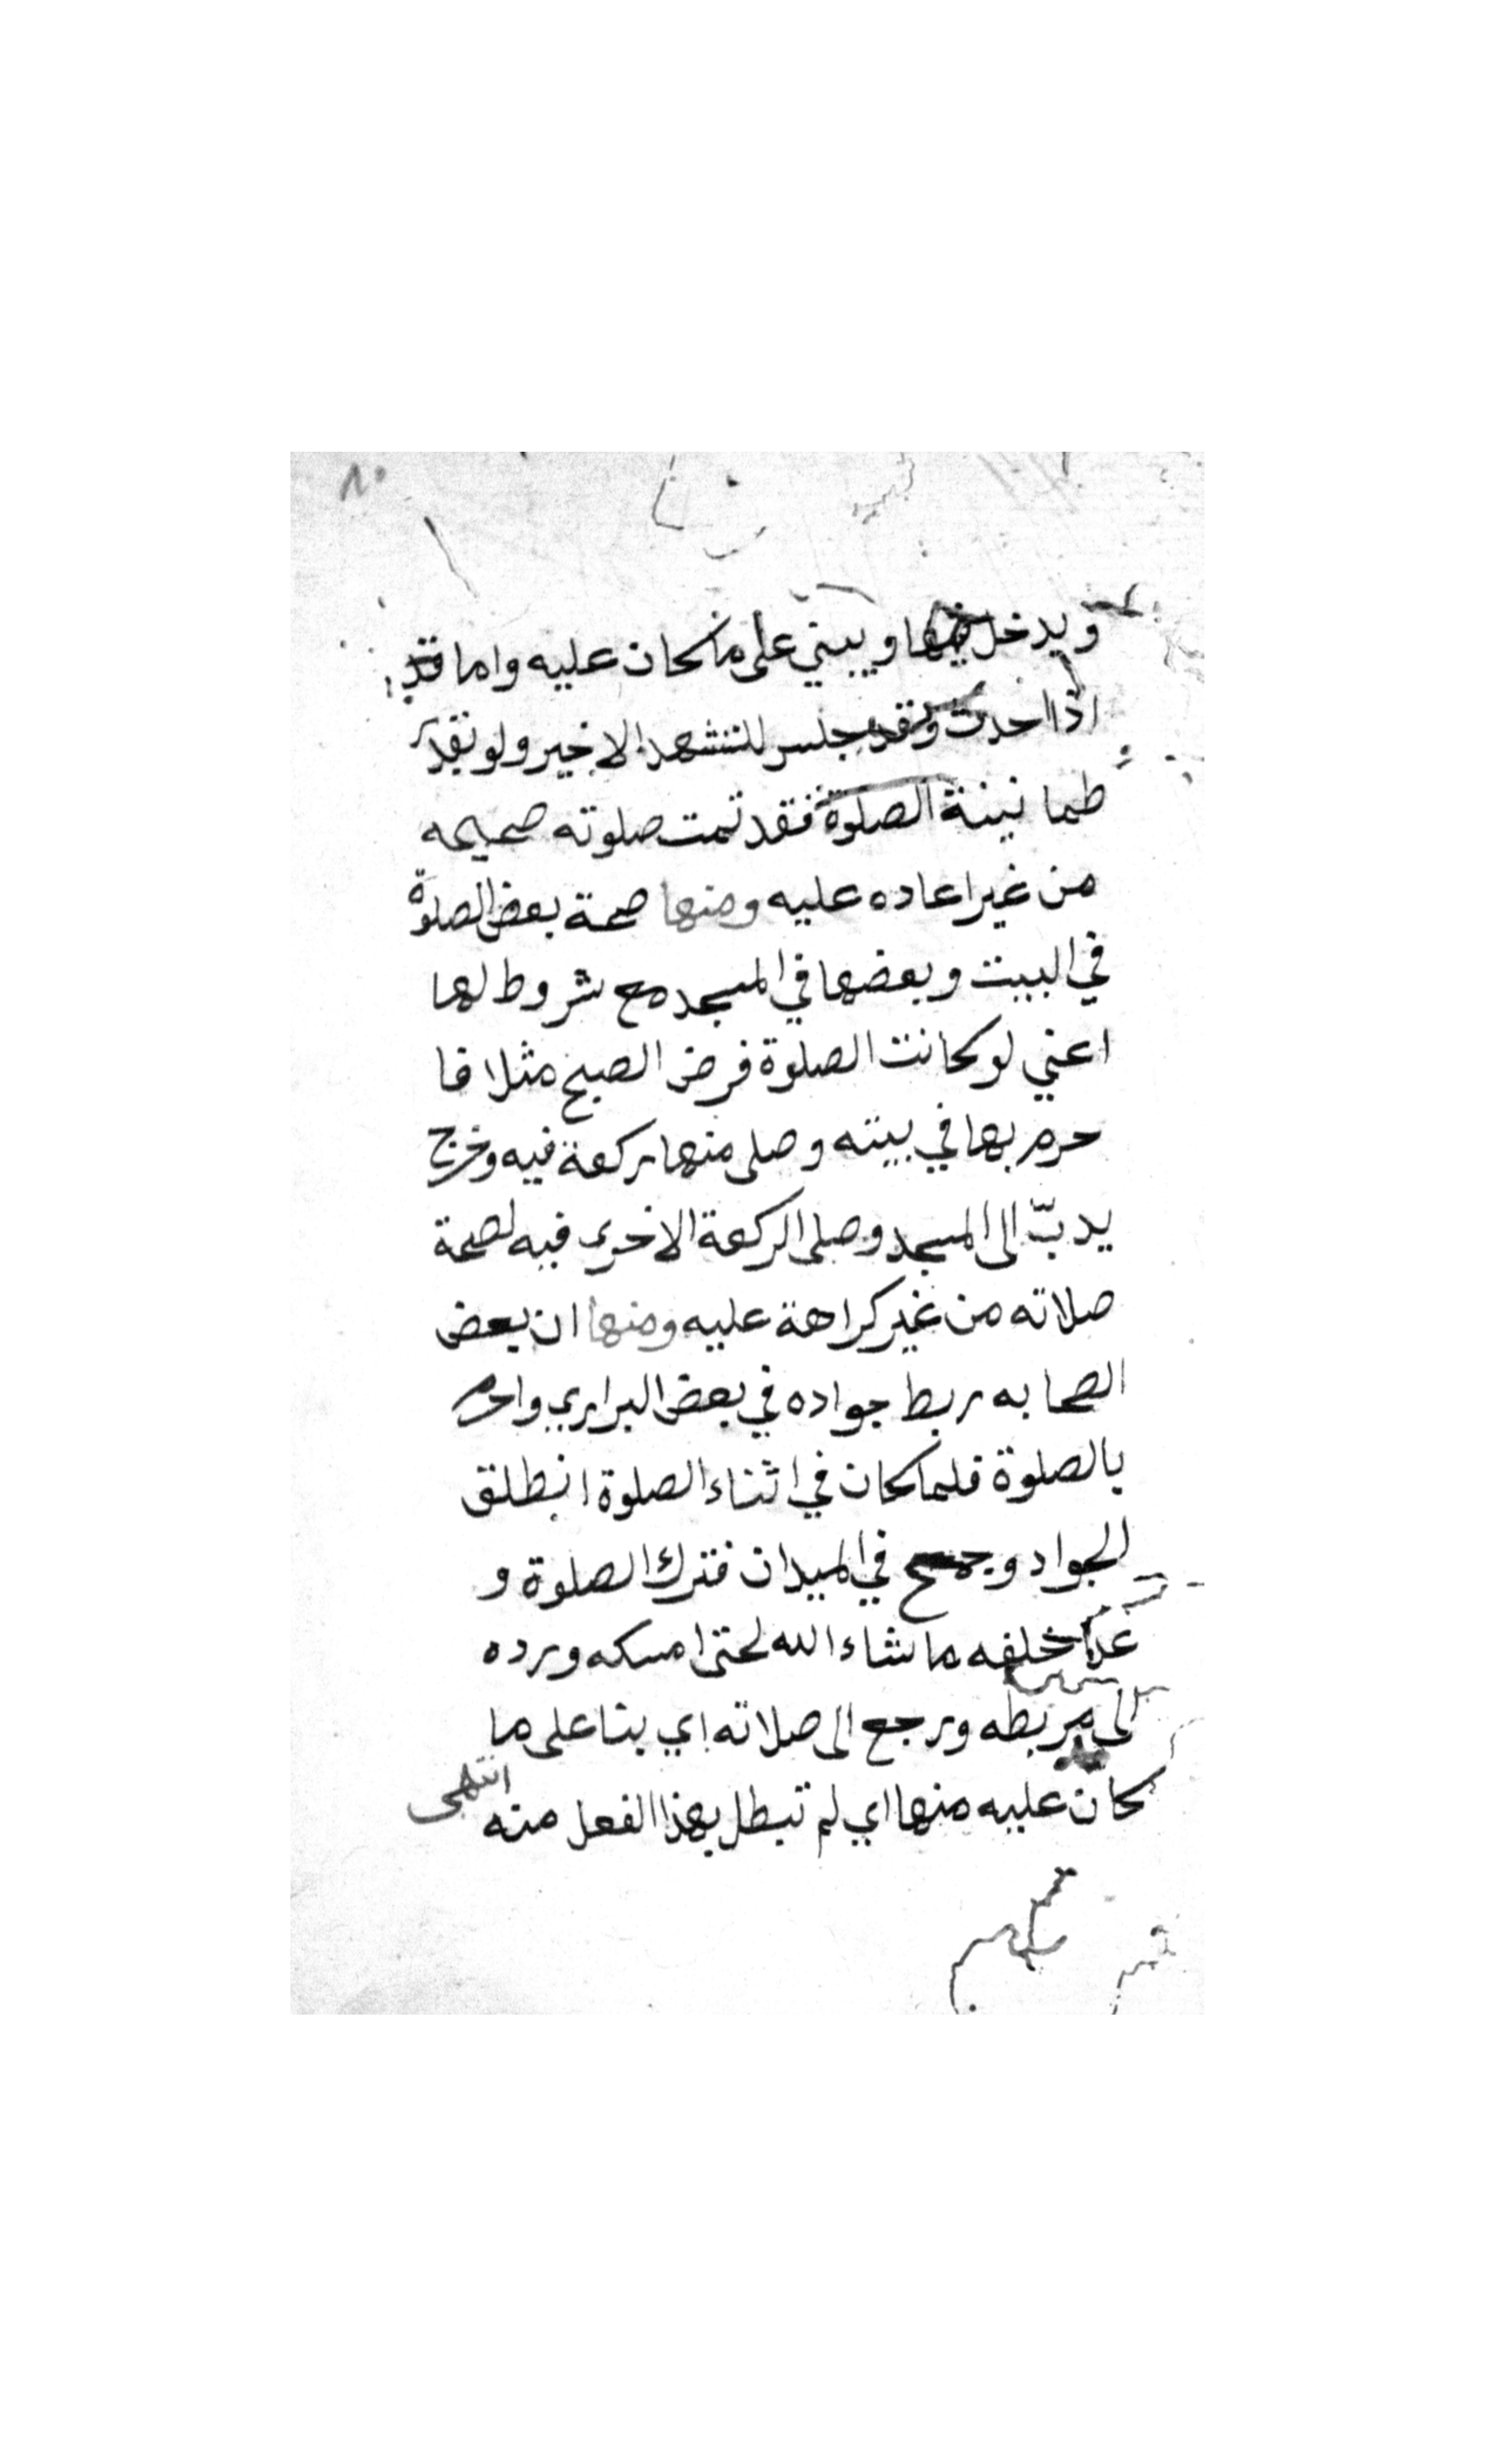 ٨٠
ويدخل فيها ويبني على ما كان عليه واما قد
اذا احدث وقد جلس للتشهد الاخير ولو بقدر
طمانينة الصلوة فقد تمت صلوته صحيحه
من غير اعاده عليه ومنها صحة بعض الصلوة
في البيت وبعضها في المسجد مع شروط لها
اعني لو كانت الصلوة فرض الصبح مثلا فا
حرم بها في بيته وصلى منها ركعة فيه وخرج
يدبّ الى المسجد وصلى الركعة الاخرى فيه لصحة
صلاته من غير كراهة عليه ومنها ان بعض
الصحابه ربط جواده في بعض البراري واحرم
بالصلوة فلما كان في اثناء الصلوة انطلق
الجواد وجمح في الميدان فترك الصلوة و
غدا خلفه ما شاء الله لحتى امسكه ورده
الى مربطه ورجع الى صلاته اي بنا على ما
كان عليه منها اي لم تبطل بهذا الفعل منه انتهى